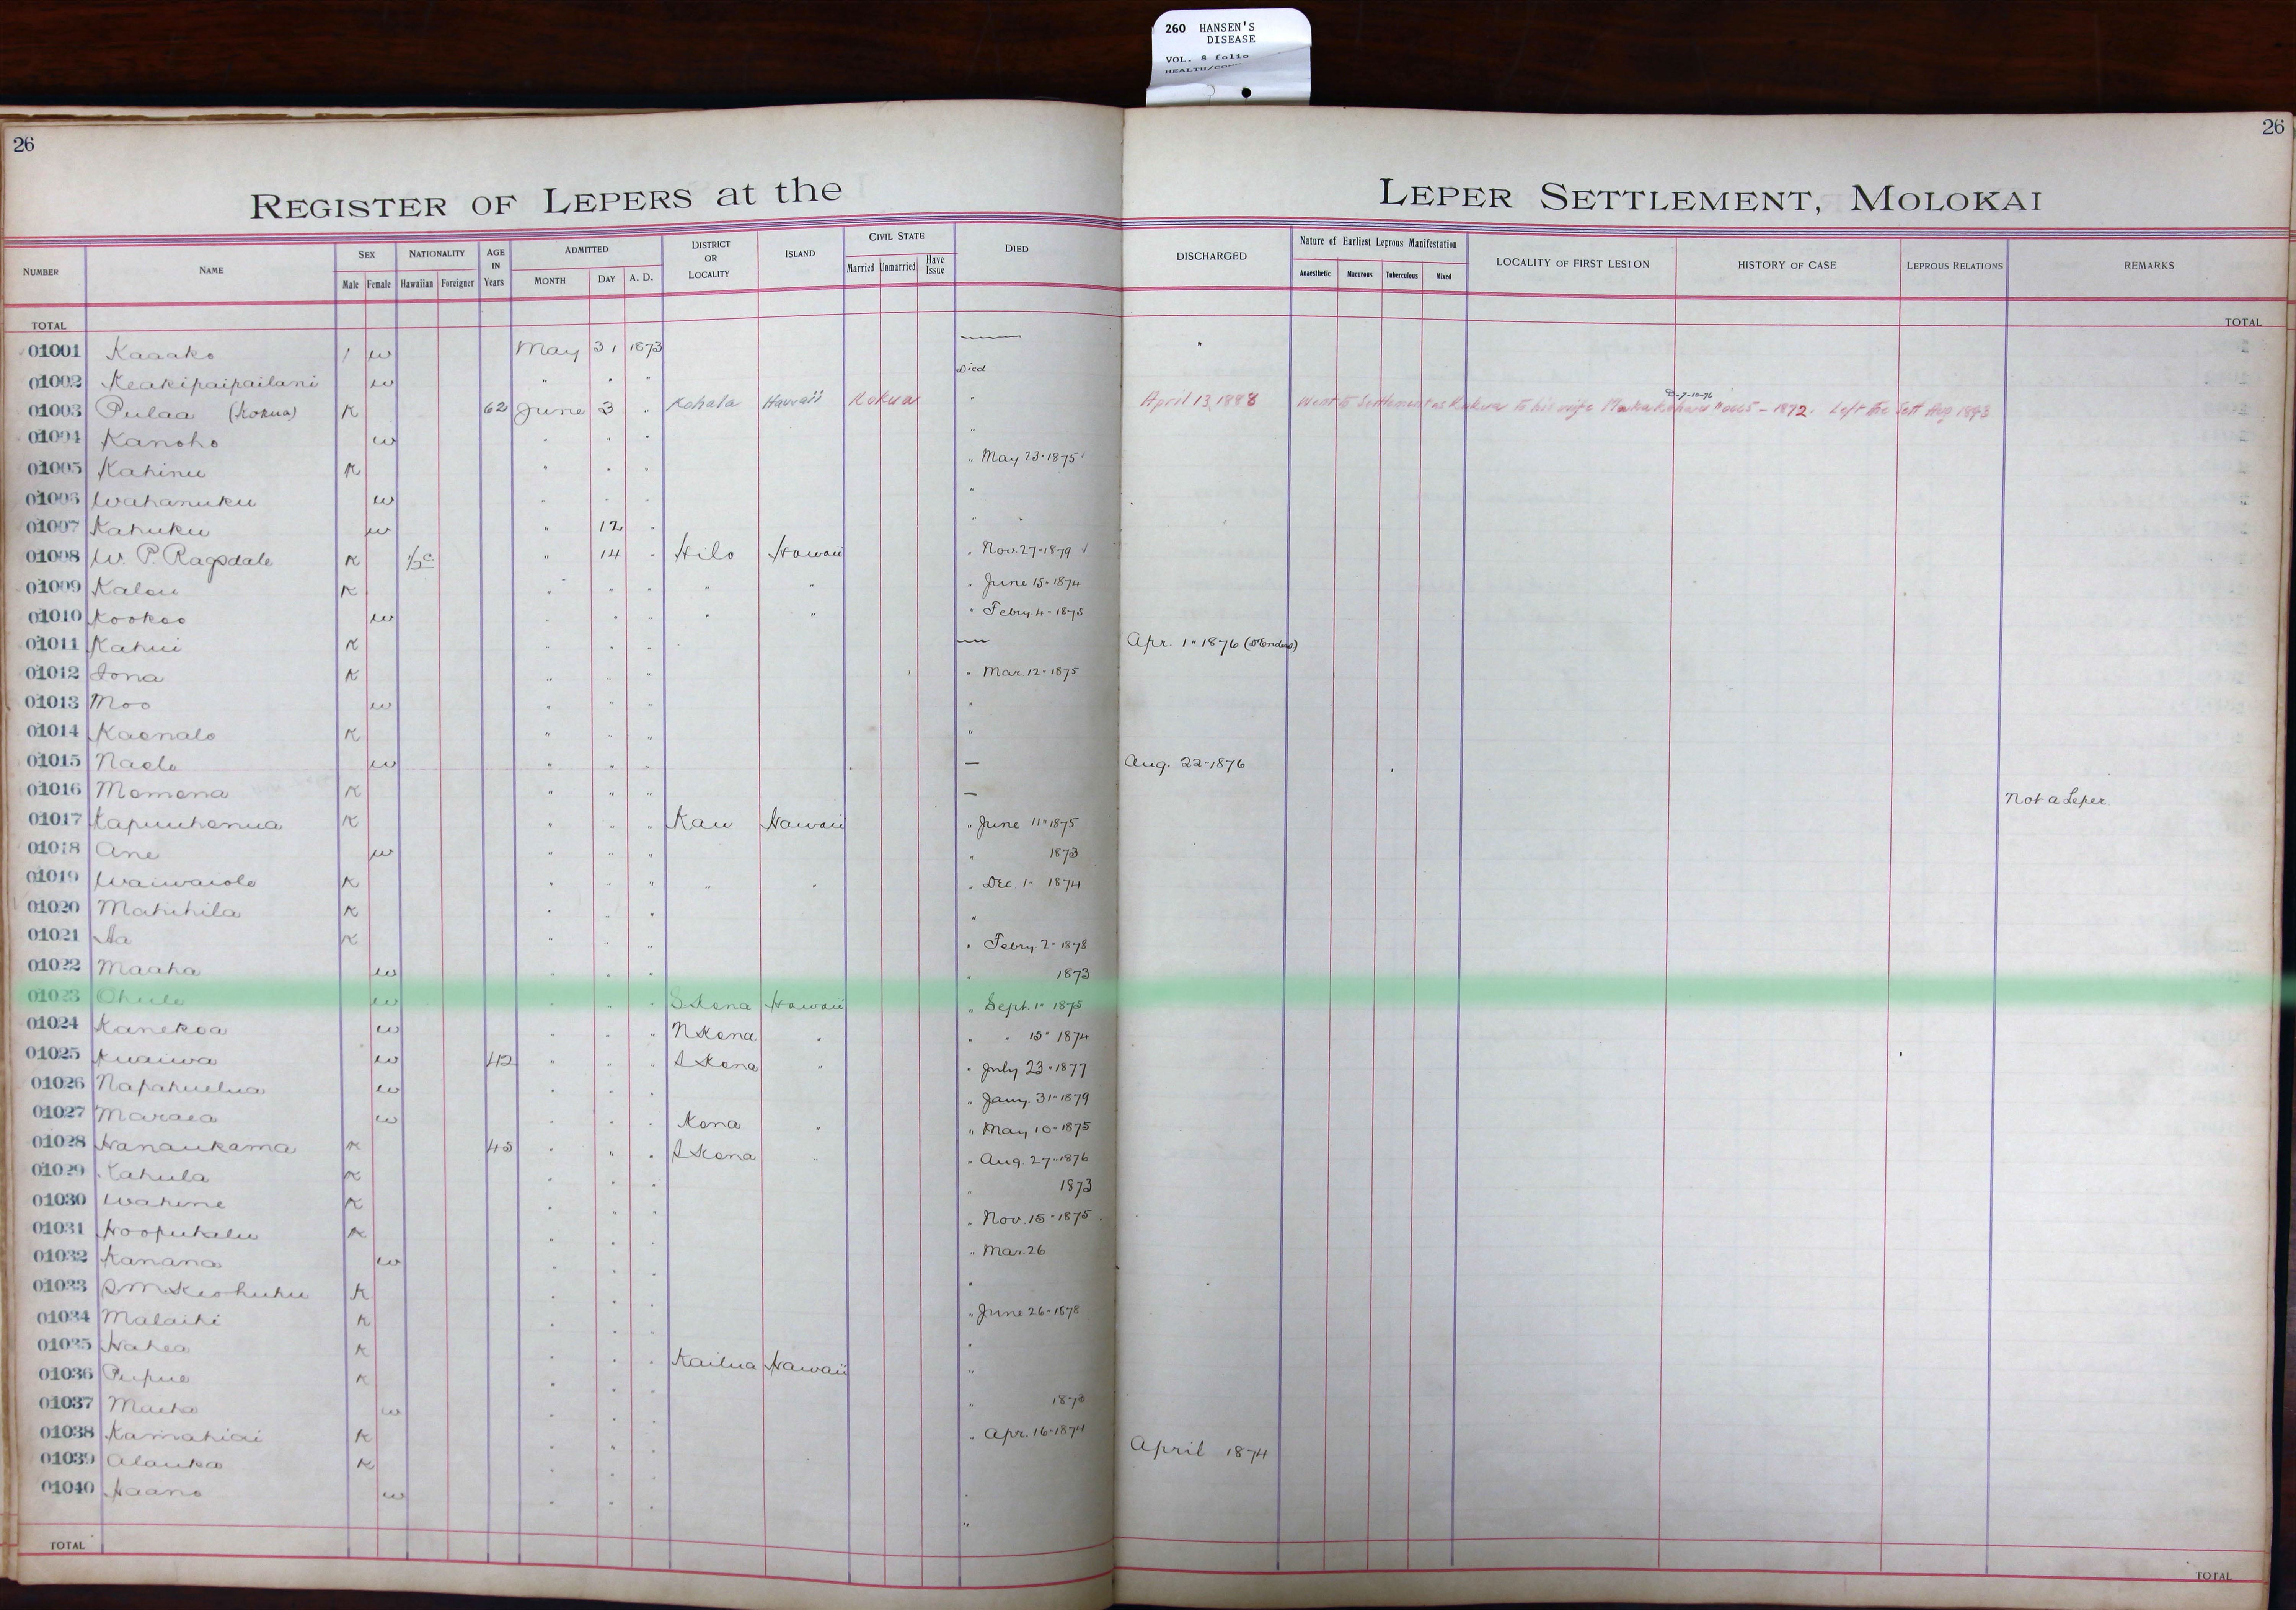 260 HANSEN'S
DISEASE
VOL. 8 folio
26
26
REGISTER OF LEPERS at the LEPER SETTLEMENT, MOLOKAI
NUMBER NAME SEX Male Female NATIONALITY Hawaiian Foreigner AGE IN Years ADMITTED MONTH DAY A. D. DISTRICT OR LOCALITY ISLAND CIVIL STATE Married Unmarried Have Issue DIED DISCHARGED Nature of Earliest Leprous Manifestation Anaesthetic Macurous Tuberculous Mixed LOCALITY OF FIRST LESION HISTORY OF CASE LEPROUS RELATIONS REMARKS
TOTAL TOTAL
01001 Kaaako w May 31 1873
01002 Keakipaipailani w " " " Died
01003 Pulaa (Kokua) K 62 June 3 " Kohala Hawaii Kokua " April 13, 1888 Went to Settlement as Kokua to his wife 1872. Left the Sett Aug 1893
01004 Kanoho w " " " "
01005 Kahinu K " " " " May 23 " 1875
01006 Wahanuku w " " " "
01007 Kahuku w " 12 " "
01008 W. P. Ragsdale K ½ c " 14 " Hilo Hawaii " Nov. 27 " 1879
01009 Kalou K " " " " " " June 15 " 1874
01010 Kookoo w " " " " " " Febry 4 - 1875
01011 Kahui K " " " — Apr. 1 " 1876
01012 Iona K " " " " Mar. 12 " 1875
01013 Moo w " " " "
01014 Kaonalo K " " " "
01015 Naelo w " " " — Aug. 22 - 1876
01016 Momona K " " " — Not a Leper
01017 Kapuuhonua K " " " Kau Hawaii " June 11 " 1875
01018 Ane w " " " " 1873
01019 Waiwaiole K " " " " " " Dec. 1 " 1874
01020 Mahihila K " " " "
01021 Aa K " " " " Febry. 2 " 1878
01022 Maaha w " " " " 1873
01023 Ohule w " " " S Kona Hawaii " Sept. 1 " 1875
01024 Kanekoa w " " " N Kona " " " 15 " 1874
01025 Kuaiwa w 42 " " " S Kona " " July 23 " 1877
01026 Napahuelua w " " " " Jany. 31 " 1879
01027 Maraea w " " " Kona " " May 10 " 1875
01028 Hanaukama K 45 " " " S Kona " " Aug. 27 " 1876
01029 Kahula K " " " " 1873
01030 Wahine K " " " " Nov. 15 " 1875
01031 Hoopukalu K " " " " Mar. 26
01032 Kanana w " " " "
01033 S M Keohuhu K " " " " June 26 " 1878
01034 Malaihi K " " " "
01035 Hahea K " " " Kailua Hawaii "
01036 Pupue K " " " " 1873
01037 Maeha w " " " " Apr. 16 " 1874
01038 Kamahiai K " " " April 1874
01039 Alauka K " " " "
01040 Haano w " " " "
TOTAL TOTAL